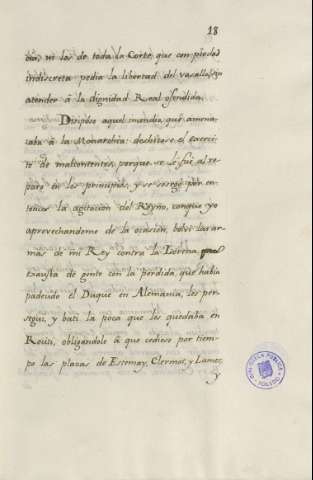 18
dia, ni las de toda la Corte que con piedad
indiscreta pedia la libertad del vasallo, sin
atender á la dignidad Real ofendida.
Disipóse aquel incendio, que amena-
zaba á la Monarchia: deshizose el exerci-
to de malcontentos, porque se le fué al re-
paro en los principios, y se sosegó por en-
tonces la agitacion del Reyno, conque yo
aprovechandome de la ocasion, bolví las ar-
mas de mi Rey contra la Lorena,
exausta de gente con la pérdida, que habia
padecido el Duque en Alemania, les per-
seguí, y batí la poca que les quedaba en
obligandole á que cediese por tiem-
po las plazas de Estenay, Clermot, y Lamet,
y
BIBLIOTECA PUBLICA
TOLEDO